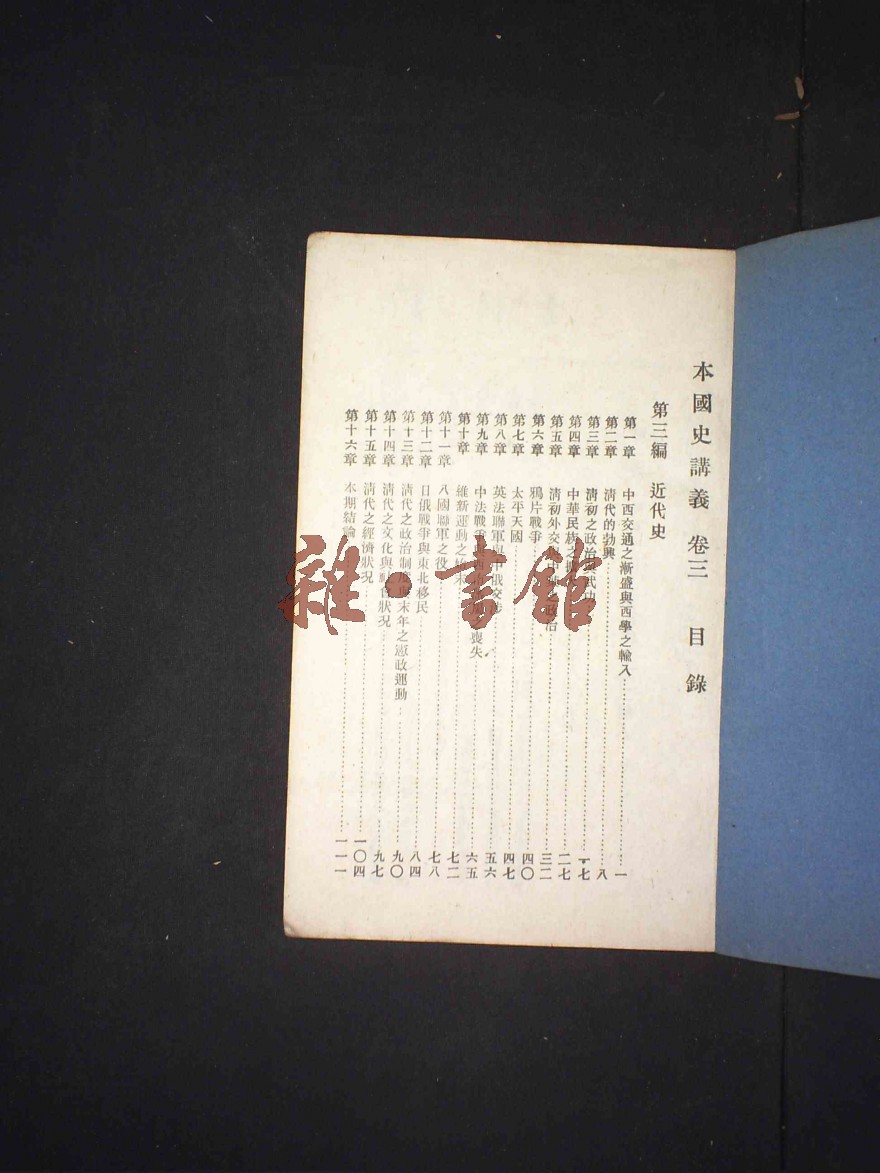 本國史講義 卷三 目錄
第三編 近代史
第一章 中西交通之漸盛與西學之輸入 一
第二章 清代的勃興 八
第三章 清初之政治與武功 一七
第四章 中華民族之擴 二七
第五章 清初外交與中 政治 三二
第六章 鴉片戰爭 四〇
第七章 太平天國 四七
第八章 英法聯軍與中俄交涉 五六
第九章 中法戰爭 西 喪失 六五
第十章 維新運動之始末 七二
第十一章 八國聯軍之役 七八
第十二章 日俄戰爭與東北移民 八四
第十三章 清代之政治制度與末年之憲政運動 九〇
第十四章 清代之文化與社會狀況 九七
第十五章 清代之經濟狀況 一〇四
第十六章 本期結論 一一一
雜·書館